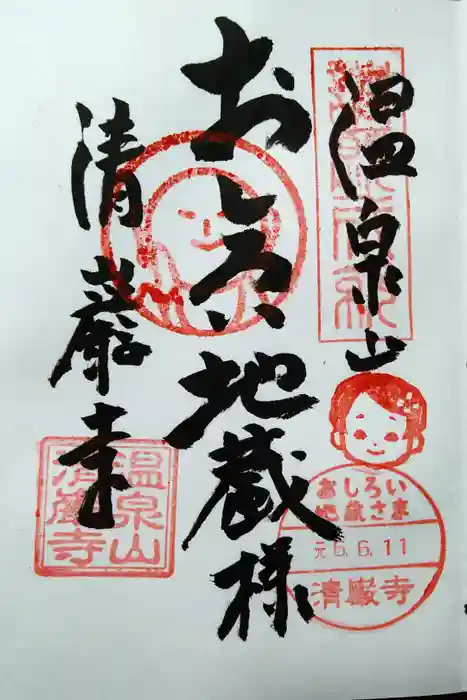 温泉山
おしろい地蔵様
清巌寺
おしろい
地蔵さま
元 6.6.11
清巌寺
温泉山
清巌寺